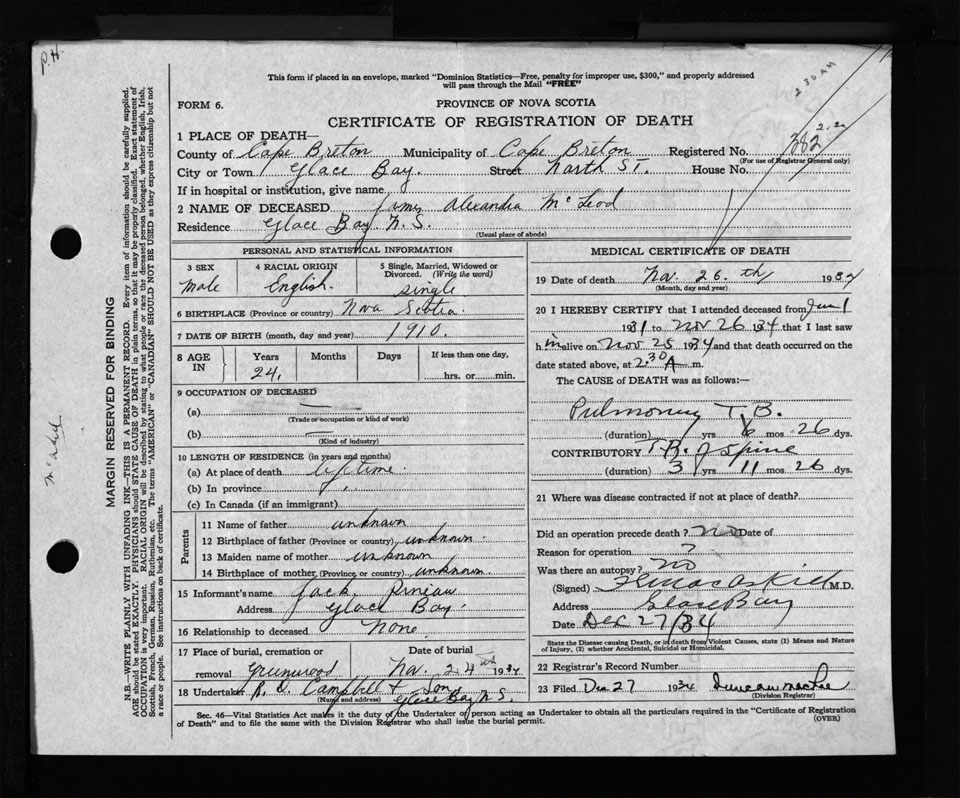 P.H.
2 30 AM
This form if placed in an envelope, marked "Dominion Statistics—Free, penalty for improper use, $300," and properly addressed
will pass through the Mail "FREE"
FORM 6.
PROVINCE OF NOVA SCOTIA
CERTIFICATE OF REGISTRATION OF DEATH
1 PLACE OF DEATH—
County of Cape Breton Municipality of Cape Breton Registered No. 382
(For use of Registrar General only)
City or Town Glace Bay. Street North ST. House No.
If in hospital or institution, give name
2 NAME OF DECEASED James Alexandra McLeod
Residence Glace Bay N.S.
(Usual place of abode)
PERSONAL AND STATISTICAL INFORMATION
3 SEX
Male
4 RACIAL ORIGIN
English.
5 Single, Married, Widowed or
Divorced. (Write the word)
single
6 BIRTHPLACE (Province or country) Nova Scotia.
7 DATE OF BIRTH (month, day and year) 1910.
8 AGE
IN
Years
24,
Months
Days
If less than one day,
hrs. or min.
9 OCCUPATION OF DECEASED
(a)
(Trade or occupation or kind of work)
(b)
(Kind of industry)
10 LENGTH OF RESIDENCE (in years and months)
(a) At place of death lifetime.
(b) In province
(c) In Canada (if an immigrant)
Parents
11 Name of father unknown
12 Birthplace of father (Province or country) unknown.
13 Maiden name of mother unknown
14 Birthplace of mother (Province or country) unknown.
15 Informant's name Jack
Address Glace Bay.
16 Relationship to deceased None.
17 Place of burial, cremation or
removal Greenwood
Date of burial
24th 1934
18 Undertaker R. D. Campbell & Son
(Name and address) Glace Bay N.S.
MEDICAL CERTIFICATE OF DEATH
19 Date of death 26.th 1934
(Month, day and year)
20 I HEREBY CERTIFY that I attended deceased from Jan 1
1931 to Nov 26 1934 that I last saw
him alive on Nov 25 1934 and that death occurred on the
date stated above, at 2.30 A m.
The CAUSE of DEATH was as follows:—
Pulmonary T.B.
(duration) yrs 6 mos 26 dys.
CONTRIBUTORY T.B. of Spine
(duration) 3 yrs 11 mos 26 dys.
21 Where was disease contracted if not at place of death?
Did an operation precede death? No Date of
Reason for operation ?
Was there an autopsy? No
(Signed) MacAskill M.D.
Address Glace Bay
Date Dec 27/34
State the Disease causing Death, or in death from Violent Causes, state (1) Means and Nature
of Injury, (2) whether Accidental, Suicidal or Homicidal.
22 Registrar's Record Number
23 Filed Dec. 27 1934 Duncan MacRae
(Division Registrar)
Sec. 46—Vital Statistics Act makes it the duty of the Undertaker or person acting as Undertaker to obtain all the particulars required in the "Certificate of Registration
of Death" and to file the same with the Division Registrar who shall issue the burial permit.
(OVER)
MARGIN RESERVED FOR BINDING
N.B.—WRITE PLAINLY WITH UNFADING INK—THIS IS A PERMANENT RECORD. Every item of information should be carefully supplied.
AGE should be stated EXACTLY. PHYSICIANS should STATE CAUSE OF DEATH in plain terms, so that it may be properly classified. Exact statement of
OCCUPATION is very important. RACIAL ORIGIN will be described by stating to what people or race the deceased person belonged, whether English, Irish,
Scottish, French, German, Russian, Ruthenian, etc. The terms "AMERICAN" or "CANADIAN" SHOULD NOT BE USED as they express citizenship but not
a race or people. See instructions on back of certificate.